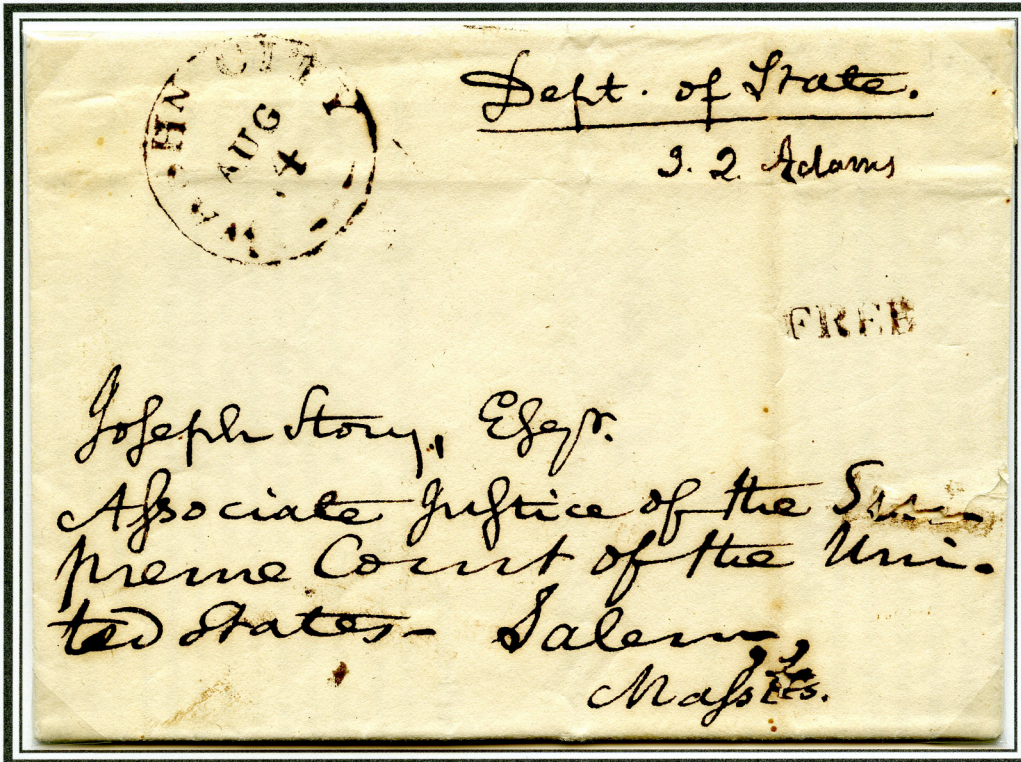 WASHN CITY
AUG
4
Dept. of State.
J. Q. Adams
FREE
Joseph Story, Esqr.
Associate Justice of the Su-
preme Court of the Uni-
ted States- Salem,
Massts.